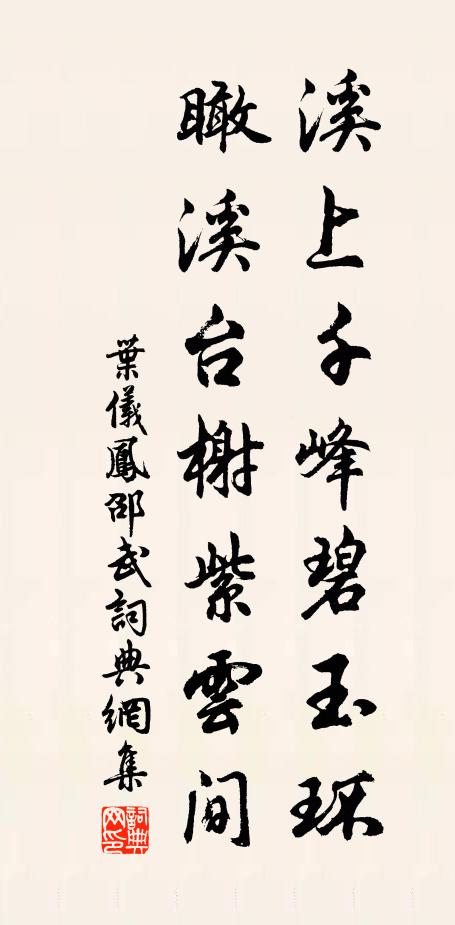 溪上千峰碧玉环
瞰溪台榭紫雲间
葉儀鳳邵武詞典網集
詞典网印